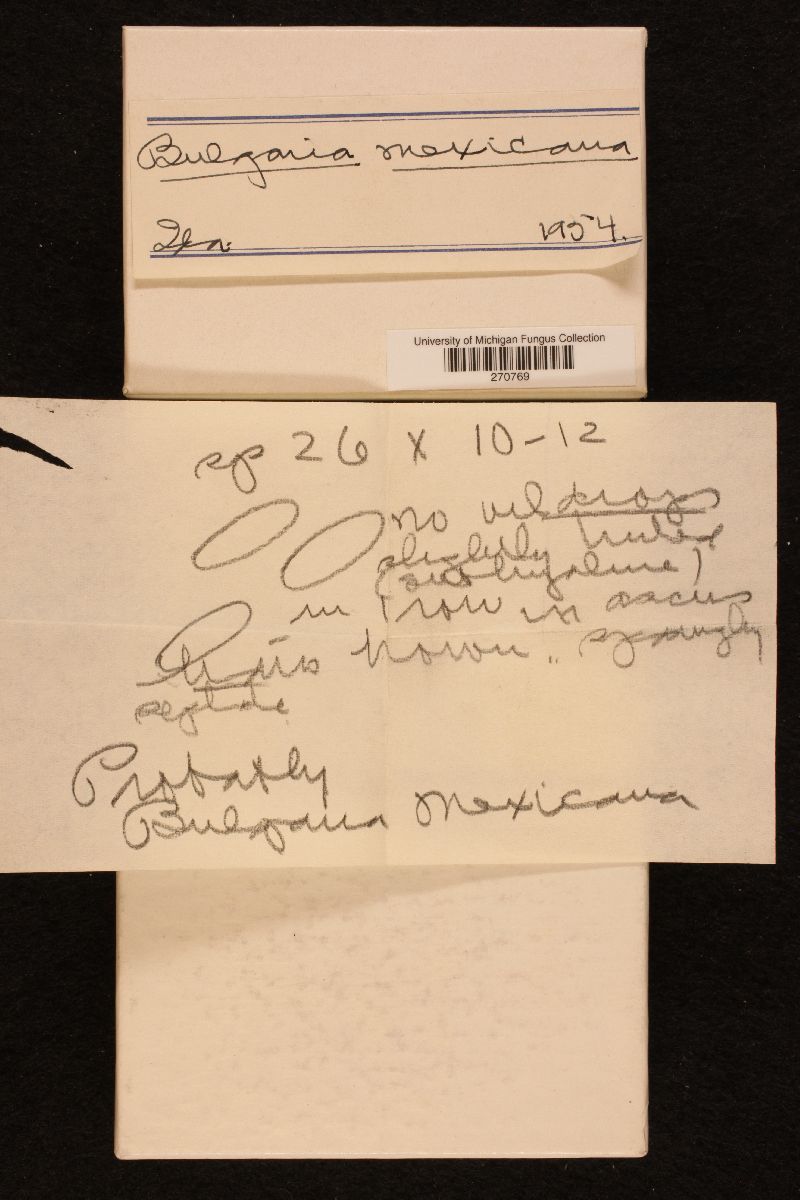 Bulgaria mexicana
1954.
University of Michigan Fungus Collection
270769
sp 26 x 10-12
no
slightly
(subhyaline)
in 1 row in ascus
Hairs brown .. sparingly
septate
Probably
Bulgaria mexicana